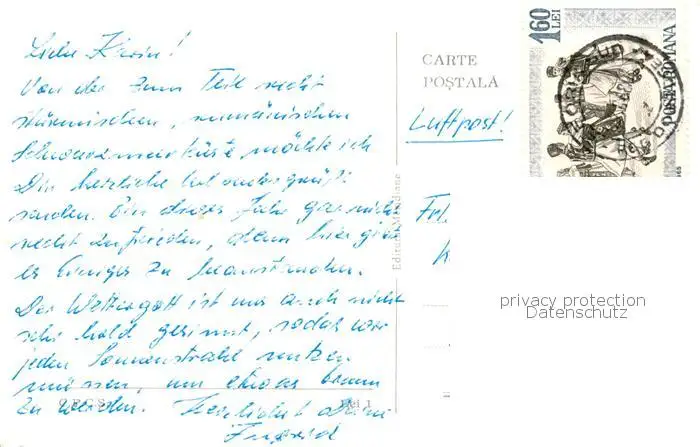 Liebe Karin!
Von der zum Teil recht
stürmischen, rumänischen
Schwarzmeerküste möchte ich
Dir herzliche Urlaubsgrüße
senden. Bin dieses Jahr gar nicht
recht zufrieden, denn hier gibt
es Einiges zu beanstanden.
Der Wettergott ist uns auch nicht
sehr hold gesinnt, sodaß wir
jeden Sonnenstrahl nutzen
müssen, um etwas braun
zu werden. Herzlichst Deine
Ingrid
CARTE
POȘTALĂ
Luftpost!
Editura Meridiane
1,60
LEI
POSTA ROMANA
privacy protection
Datenschutz